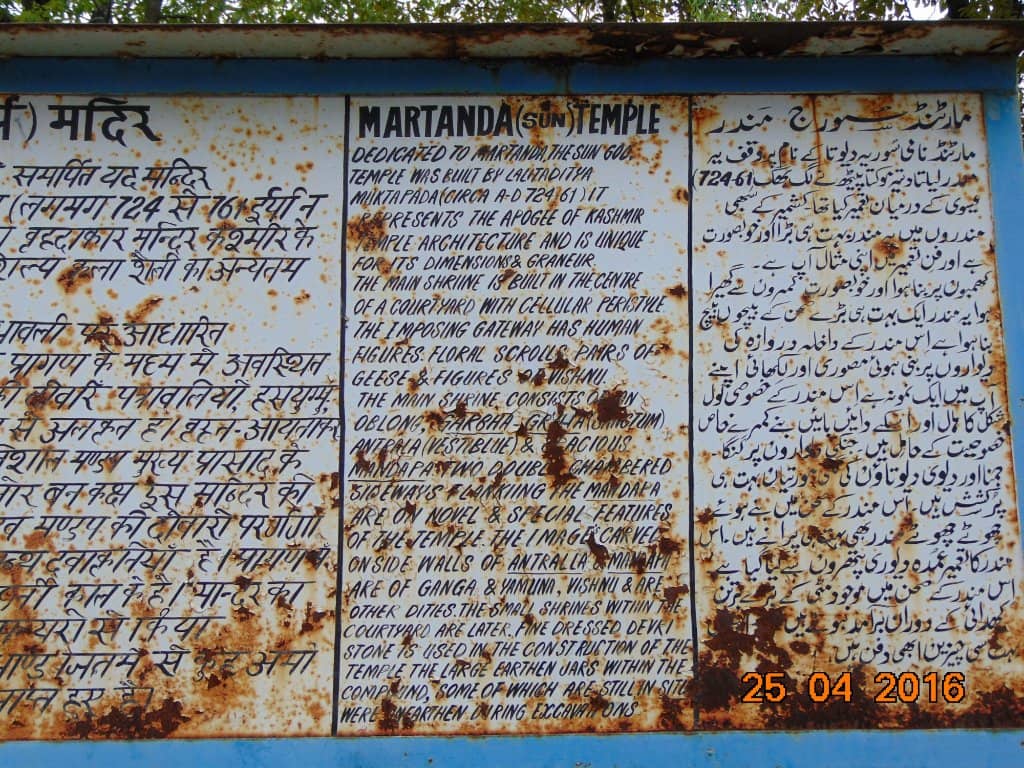 र्य ) मंदिर
समर्पित यह मन्दिर
(लगभग 724 से 761 ईर्या न
वृहदाकार मन्दिर कश्मीर के
शिल्प कला शैली का अन्यतम
आधारित
प्रागण के मध्य मे अवस्थित
दीवारें पत्रावलियों, हंसयुग्मों,
से अलंकृत है।
विशाल मण्डप मुख्य प्रासाद के
ओर बने कक्ष इस मन्दिर की
मण्डप की दीवारों पर गंगा
है।
काल के है। मन्दिर का
से किया
से कुछ अभी
MARTANDA (SUN) TEMPLE
DEDICATED TO MARTANDA, THE SUN GOD,
TEMPLE WAS BUILT BY LALITADITYA
MUKTAPADA (CIRCA A-D 724,61) IT
REPRESENTS THE APOGEE OF KASHMIR
TEMPLE ARCHITECTURE AND IS UNIQUE
FOR ITS DIMENSIONS & GRANEUR.
THE MAIN SHRINE IS BUILT IN THE CENTRE
OF A COURTYARD WITH CELLULAR PERISTYLE
THE IMPOSING GATEWAY HAS HUMAN
FIGURES, FLORAL SCROLLS, PAIRS OF
GEESE & FIGURES OF VISHNU.
THE MAIN SHRINE CONSISTS OF AN
OBLONG, GARBAH-GRIHA (SANCTUM)
ANTRALA (VESTIBLUE) & SPACIOUS
MANDAPA. TWO DOUBLE CHAMBERED
SIDEWAYS FLONKIING THE MANDAPA
ARE ON NOVEL & SPECIAL FEATURES
OF THE TEMPLE. THE IMAGE CARVED
ON SIDE WALLS OF ANTRALLA & MANDAPA
ARE OF GANGA & YAMUNA, VISHNU & ARE
OTHER DITIES. THE SMALL SHRINES WITHIN THE
COURTYARD ARE LATER. FINE DRESSED DEVRI
STONE IS USED IN THE CONSTRUCTION OF THE
TEMPLE THE LARGE EARTHEN JARS WITHIN THE
COMPOUND, SOME OF WHICH ARE STILL IN SITE
WERE UNEARTHEN DURING EXCAVATIONS
مارتنڈ سورج مندر
مارتنڈ نامی سوریہ دیوتا کے نام پر وقف یہ
مندر للتادتیہ مکتا پیڑ نے لگ بھگ (724-61)
عیسوی کے درمیان تعمیر کیا تھا کشمیر کے سبھی
مندروں میں یہ مندر بہت ہی بڑا اور خوبصورت
ہے اور فن تعمیر میں اپنی مثال آپ ہے۔
کھمبوں پر بنا ہوا اور خوبصورت کمروں سے گھرا
ہوا یہ مندر ایک بہت ہی بڑے صحن کے بیچوں بیچ
بنا ہوا ہے اس مندر کے داخلہ دروازہ کی
دیواروں پر بنی ہوئی مصوری اور لکھائی اپنے
آپ میں ایک نمونہ ہے اس مندر کے خصوصی گول
شکل کا ہال اور اسکے دائیں بائیں بنے کمرے خاص
خصوصیت کے حامل ہیں جنکی دیواروں پر گنگا
جمنا اور دیوی دیوتاؤں کی مورتیاں بہت ہی
پرکشش ہیں۔ اس مندر کے صحن میں بنے ہوئے
چھوٹے چھوٹے مندر بھی بہت ہی پرانے ہیں۔ اس
مندر کا تعمیر عمدہ دیوری پتھروں سے کیا گیا ہے
اس مندر کے صحن میں موجود مٹی کے بڑے برتن
کھدائی کے دوران برآمد ہوئے ہیں
بہت سی چیزیں ابھی دفن ہیں۔
25 04 2016